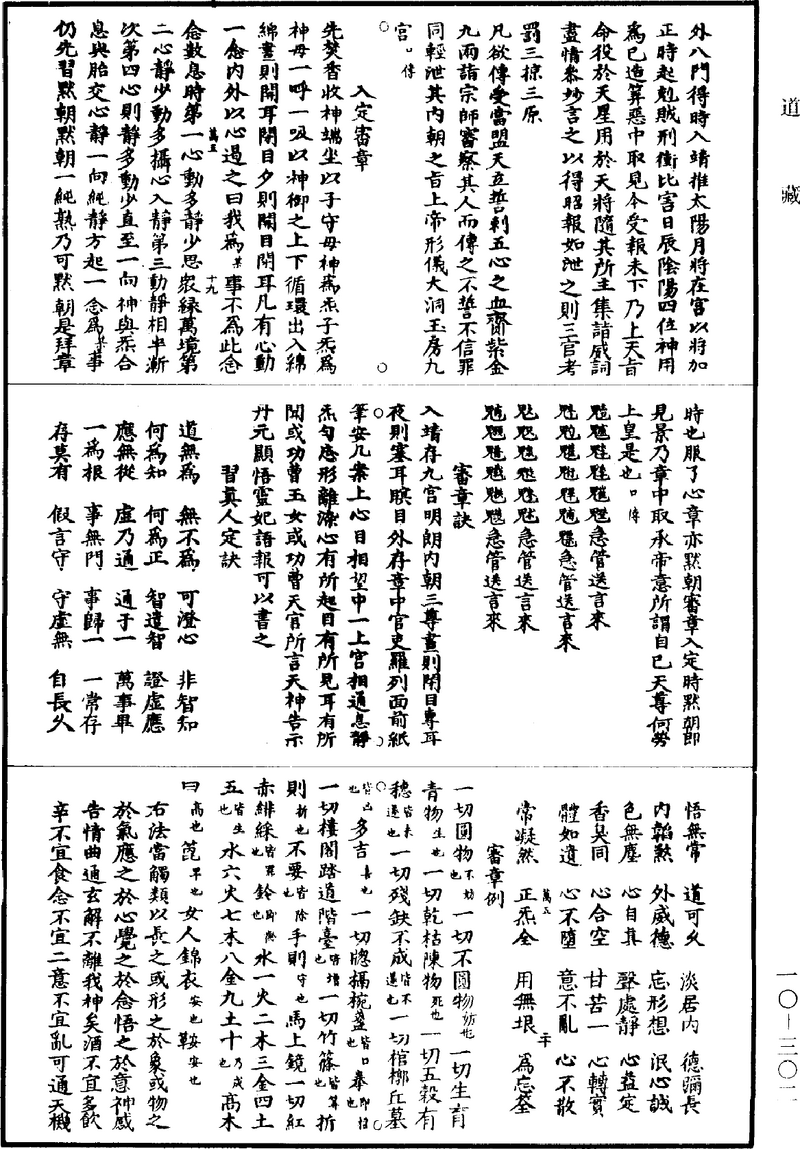 道藏
外八門得時入靖推太陽月將在宮以將加
正時起剋賊刑衝比害日辰陰陽四位神用
爲已造算惡中取見今受報未下乃上天旨
命役於天星用於天將隨其所主集諸威詞
盡情叅妙言之以得昭報如泄之則三官考
罰三掠三原
凡欲傳受當盟天立誓刺五心之血齎紫金
九兩詣宗師審察其人而傳之不誓不信罪
同輕泄其內朝之旨上帝形儀大洞玉房九
宮口傳
入定審章
先焚香收神端坐以子守母神爲炁子炁爲
神母一呼一吸以神御之上下循環出入綿
綿晝則開耳閉目夕則開目閉耳凡有心動
一念內外以心過之曰我爲某事不爲此念
萬五
十九
念數息時第一心動多靜少思衆緣萬境第
二心靜少動多攝心入靜第三動靜相半漸
次第四心則靜多動少直至一向神與炁合
息與胎交心靜一向純靜方起一念爲某事
仍先習默朝默朝一純熟乃可默朝是拜章
時也服了心章亦默朝審章入定時默朝即
見景乃章中取承帝意所謂自己天尊何勞
上皇是也口傳
急管送言來
急管送言來
急管送言來
急管送言來
審章訣
入靖存九宮明朗內朝三尊晝則閉目專耳
夜則塞耳瞑目外存章中官吏羅列面前紙
筆安几案上心目相望中一上宮相通息靜
炁勻忘形離染心有所起目有所見耳有所
聞或功曹玉女或功曹天官所言天神告示
丹元顯悟靈妃語報可以書之
習真人定訣
道無爲 無不爲 可澄心 非智知
何爲知 何爲正 智遣智 證虛應
應無從 虛乃通 通于一 萬事畢
一爲根 事無門 事歸一 一常存
存莫有 假言守 守虛無 自長久
悟無常 道可久 淡居內 德彌長
內韜黙 外威德 忘形想 泯心誠
色無塵 心自真 聲處靜 心益定
香臭同 心合空 甘苦一 心轉實
體如遺 心不墮 意不亂 心不散
常凝然 正炁全 用無垠 爲忘荃
萬五
二十
審章例
一切圓物不動也一切不圓物妨也一切生育
青物生也一切乾枯陳物死也一切五穀有
穗皆未遂也一切殘鈌不成皆不遂也一切棺槨丘墓
皆凶也多吉喜也一切㥽槅椀盞皆口也奉即拍也
一切樓閣踏道階臺皆增也一切竹篠皆算也折
則折也不要皆除也手則守也馬上鏡一切紅
赤緋綵皆罪也鈴也水一火二木三金四土
五皆生也水六火七木八金九土十乃成也高木
曰高也蓖早也女人錦衣安也鞍安也
右法當觸類以長之或形之於象或物之
於氣應之於心覺之於念悟之於意神感
告情曲通玄解不離我神矣酒不宜多飲
辛不宜食念不宜二意不宜亂可通天機
一〇—三〇二